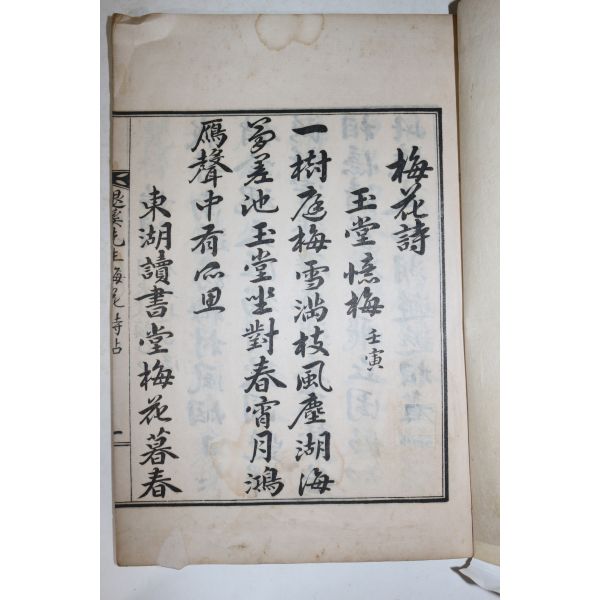 梅花詩
玉堂憶梅 壬寅
一樹庭梅雪滿枝風塵湖海
夢差池玉堂坐對春宵月鴻
雁聲中有所思
東湖讀書堂梅花暮春
退溪先生梅花詩帖
一